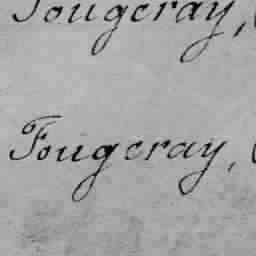 Fougeray,
Fougeray,